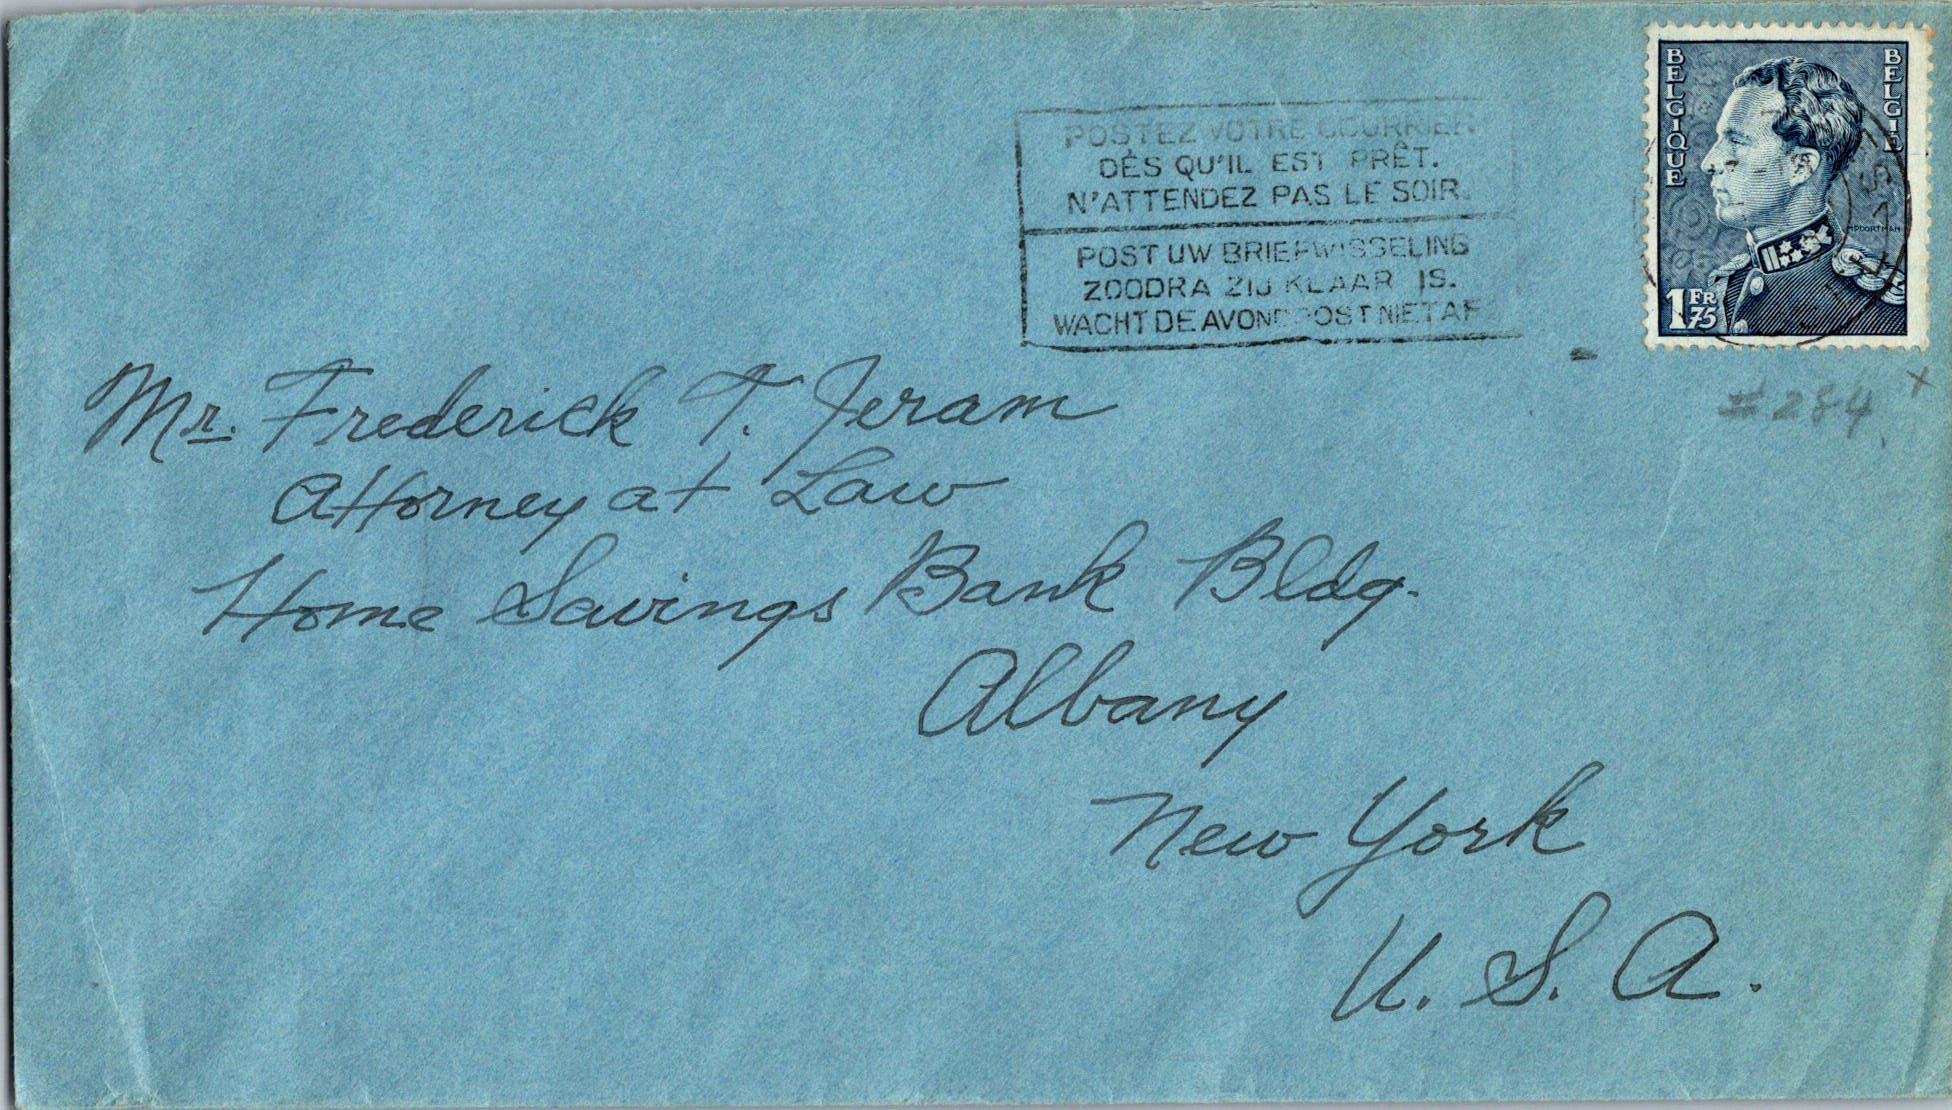 POSTEZ VOTRE COURRIER
DÈS QU'IL EST PRÊT.
N'ATTENDEZ PAS LE SOIR.
POST UW BRIEFWISSELING
ZOODRA ZIJ KLAAR IS.
WACHT DE AVONDPOST NIET AF
BELGIQUE
BELGIE
MPOORTMAN
1 FR 75
#284
x
Mr. Frederick T. Jeram
Attorney at Law
Home Savings Bank Bldg.
Albany
New York
U. S. A.